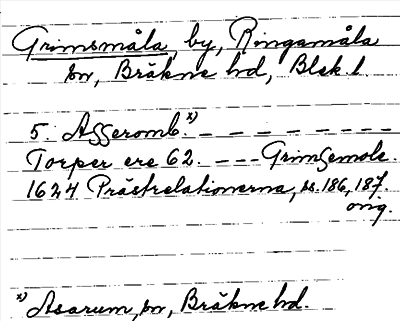 Grimsmåla, by, Ringamåla
sn, Bräkne hd, Blek. l.
5. Asseromb.x) — — — — — — — —
Torper ere 62. — — — Grimsemole.
1624 Prästrelationerna, s. 186, 187.
orig.
x) Asarum, sn, Bräkne hd.